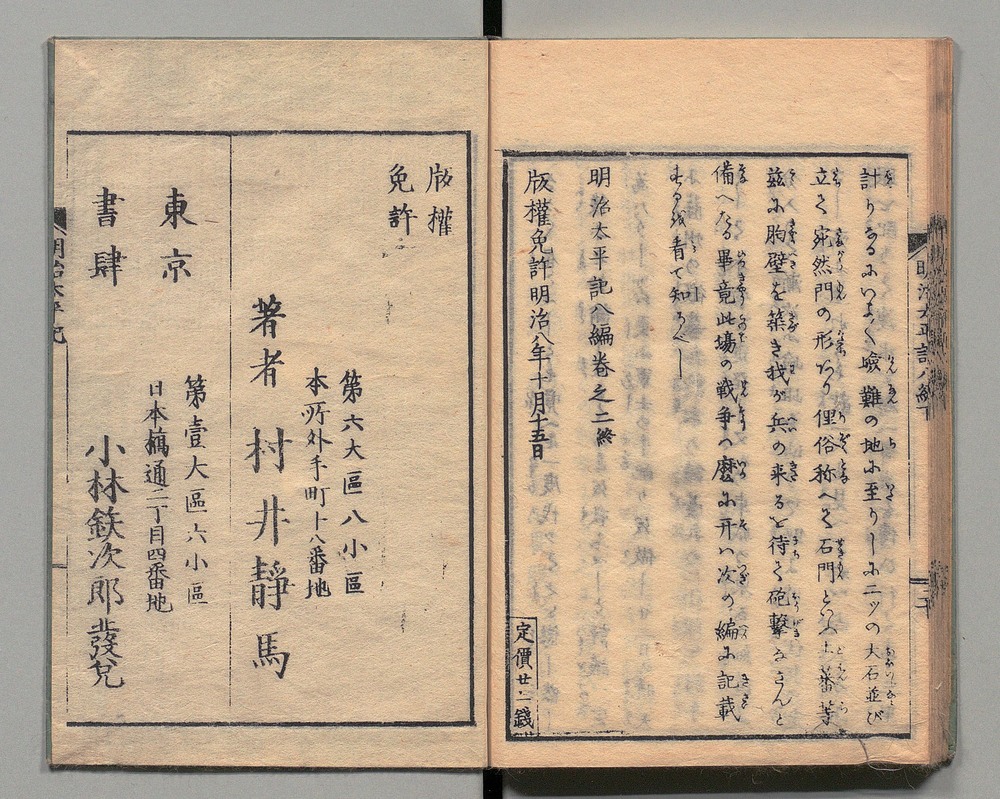 計りなるにいよ〱嶮難の地に至りしに二ツの大石並び
立て宛然門の形あり俚俗称へて石門といふ土蕃等
玆に胸壁を築き我が兵の来るを待て砲撃なさんと
備へたる畢竟此場の戦争ハ麼に开ハ次の編に記載
するを看て知るべし
明治太平記八編巻之二終
版權免許明治八年十月十五日
定價廿二錢
明治太平記八編下
二十
版權
免許
第六大區八小區
本所外手町十八番地
著者 村井靜馬
東京
第壹大區六小區
日本橋通二丁目四番地
書肆 小林鉃次郎發兌
明治太平記